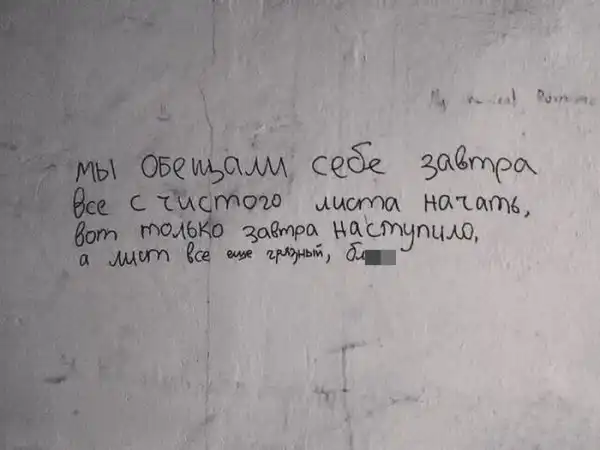 My Chemical Romance
мы обещали себе завтра
все с чистого листа начать,
вот только завтра наступило,
а лист все еще грязный, бл